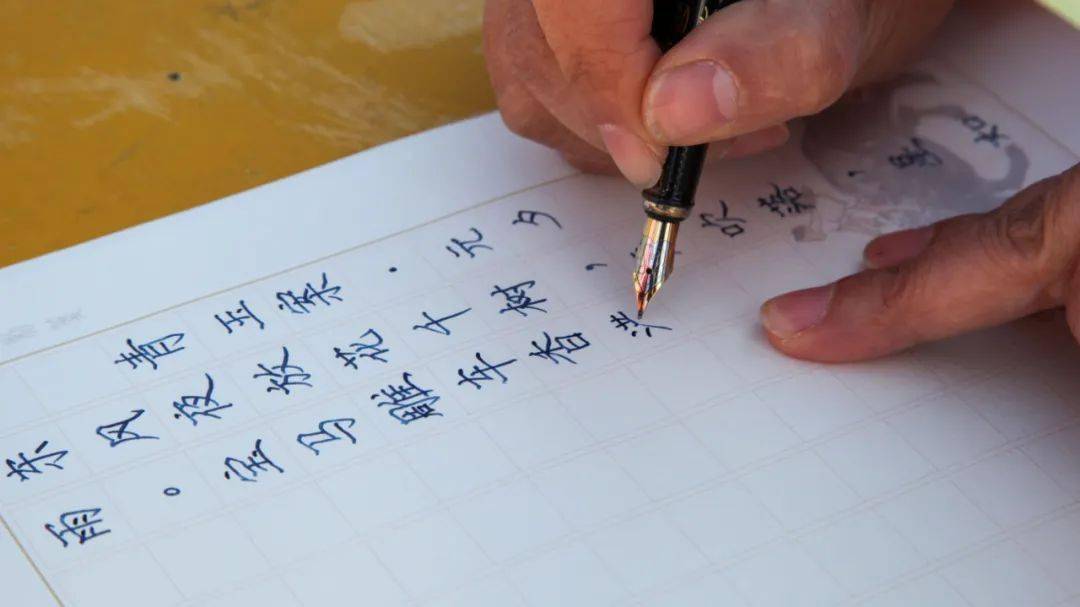 青玉案·元夕
东风夜放花千树,吹落,星如
雨。宝马雕车香